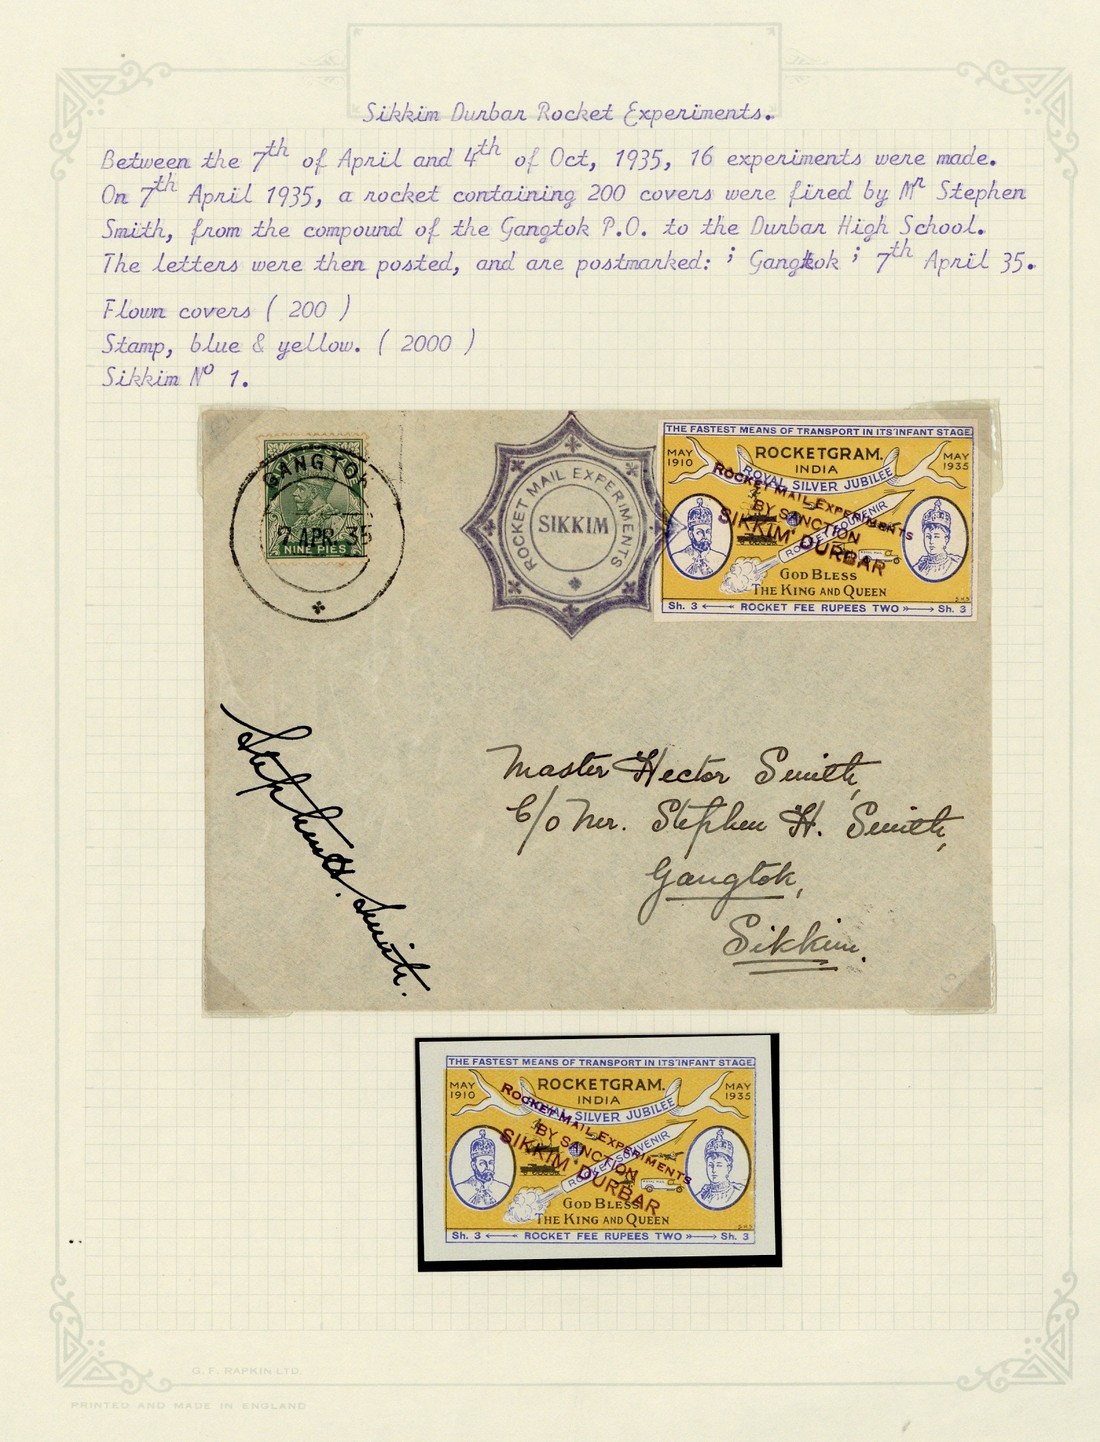 Sikkim Durbar Rocket Experiments.
Between the 7th of April and 4th of Oct, 1935, 16 experiments were made.
On 7th April 1935, a rocket containing 200 covers were fired by Mr Stephen
Smith, from the compound of the Gangtok P.O. to the Durbar High School.
The letters were then posted, and are postmarked: ; Gangtok ; 7th April 35.
Flown covers ( 200 )
Stamp, blue & yellow. ( 2000 )
Sikkim No 1.
GANGTOK
7 APR. 35
NINE PIES
ROCKET MAIL EXPERIMENTS
SIKKIM
THE FASTEST MEANS OF TRANSPORT IN ITS'INFANT STAGE
MAY 1910
ROCKETGRAM.
INDIA
MAY 1935
ROYAL SILVER JUBILEE
ROCKET MAIL EXPERIMENTS
BY SANCTION
SIKKIM DURBAR
ROCKET SOUVENIR
GOD BLESS
THE KING AND QUEEN
Sh. 3 ROCKET FEE RUPEES TWO Sh. 3
Stephen H. Smith.
Master Hector Smith,
C/o Mr. Stephen H. Smith,
Gangtok,
Sikkim.
THE FASTEST MEANS OF TRANSPORT IN ITS'INFANT STAGE
MAY 1910
ROCKETGRAM.
INDIA
MAY 1935
ROYAL SILVER JUBILEE
ROCKET MAIL EXPERIMENTS
BY SANCTION
SIKKIM DURBAR
ROCKET SOUVENIR
GOD BLESS
THE KING AND QUEEN
Sh. 3 ROCKET FEE RUPEES TWO Sh. 3
G. F. RAPKIN LTD.
PRINTED AND MADE IN ENGLAND